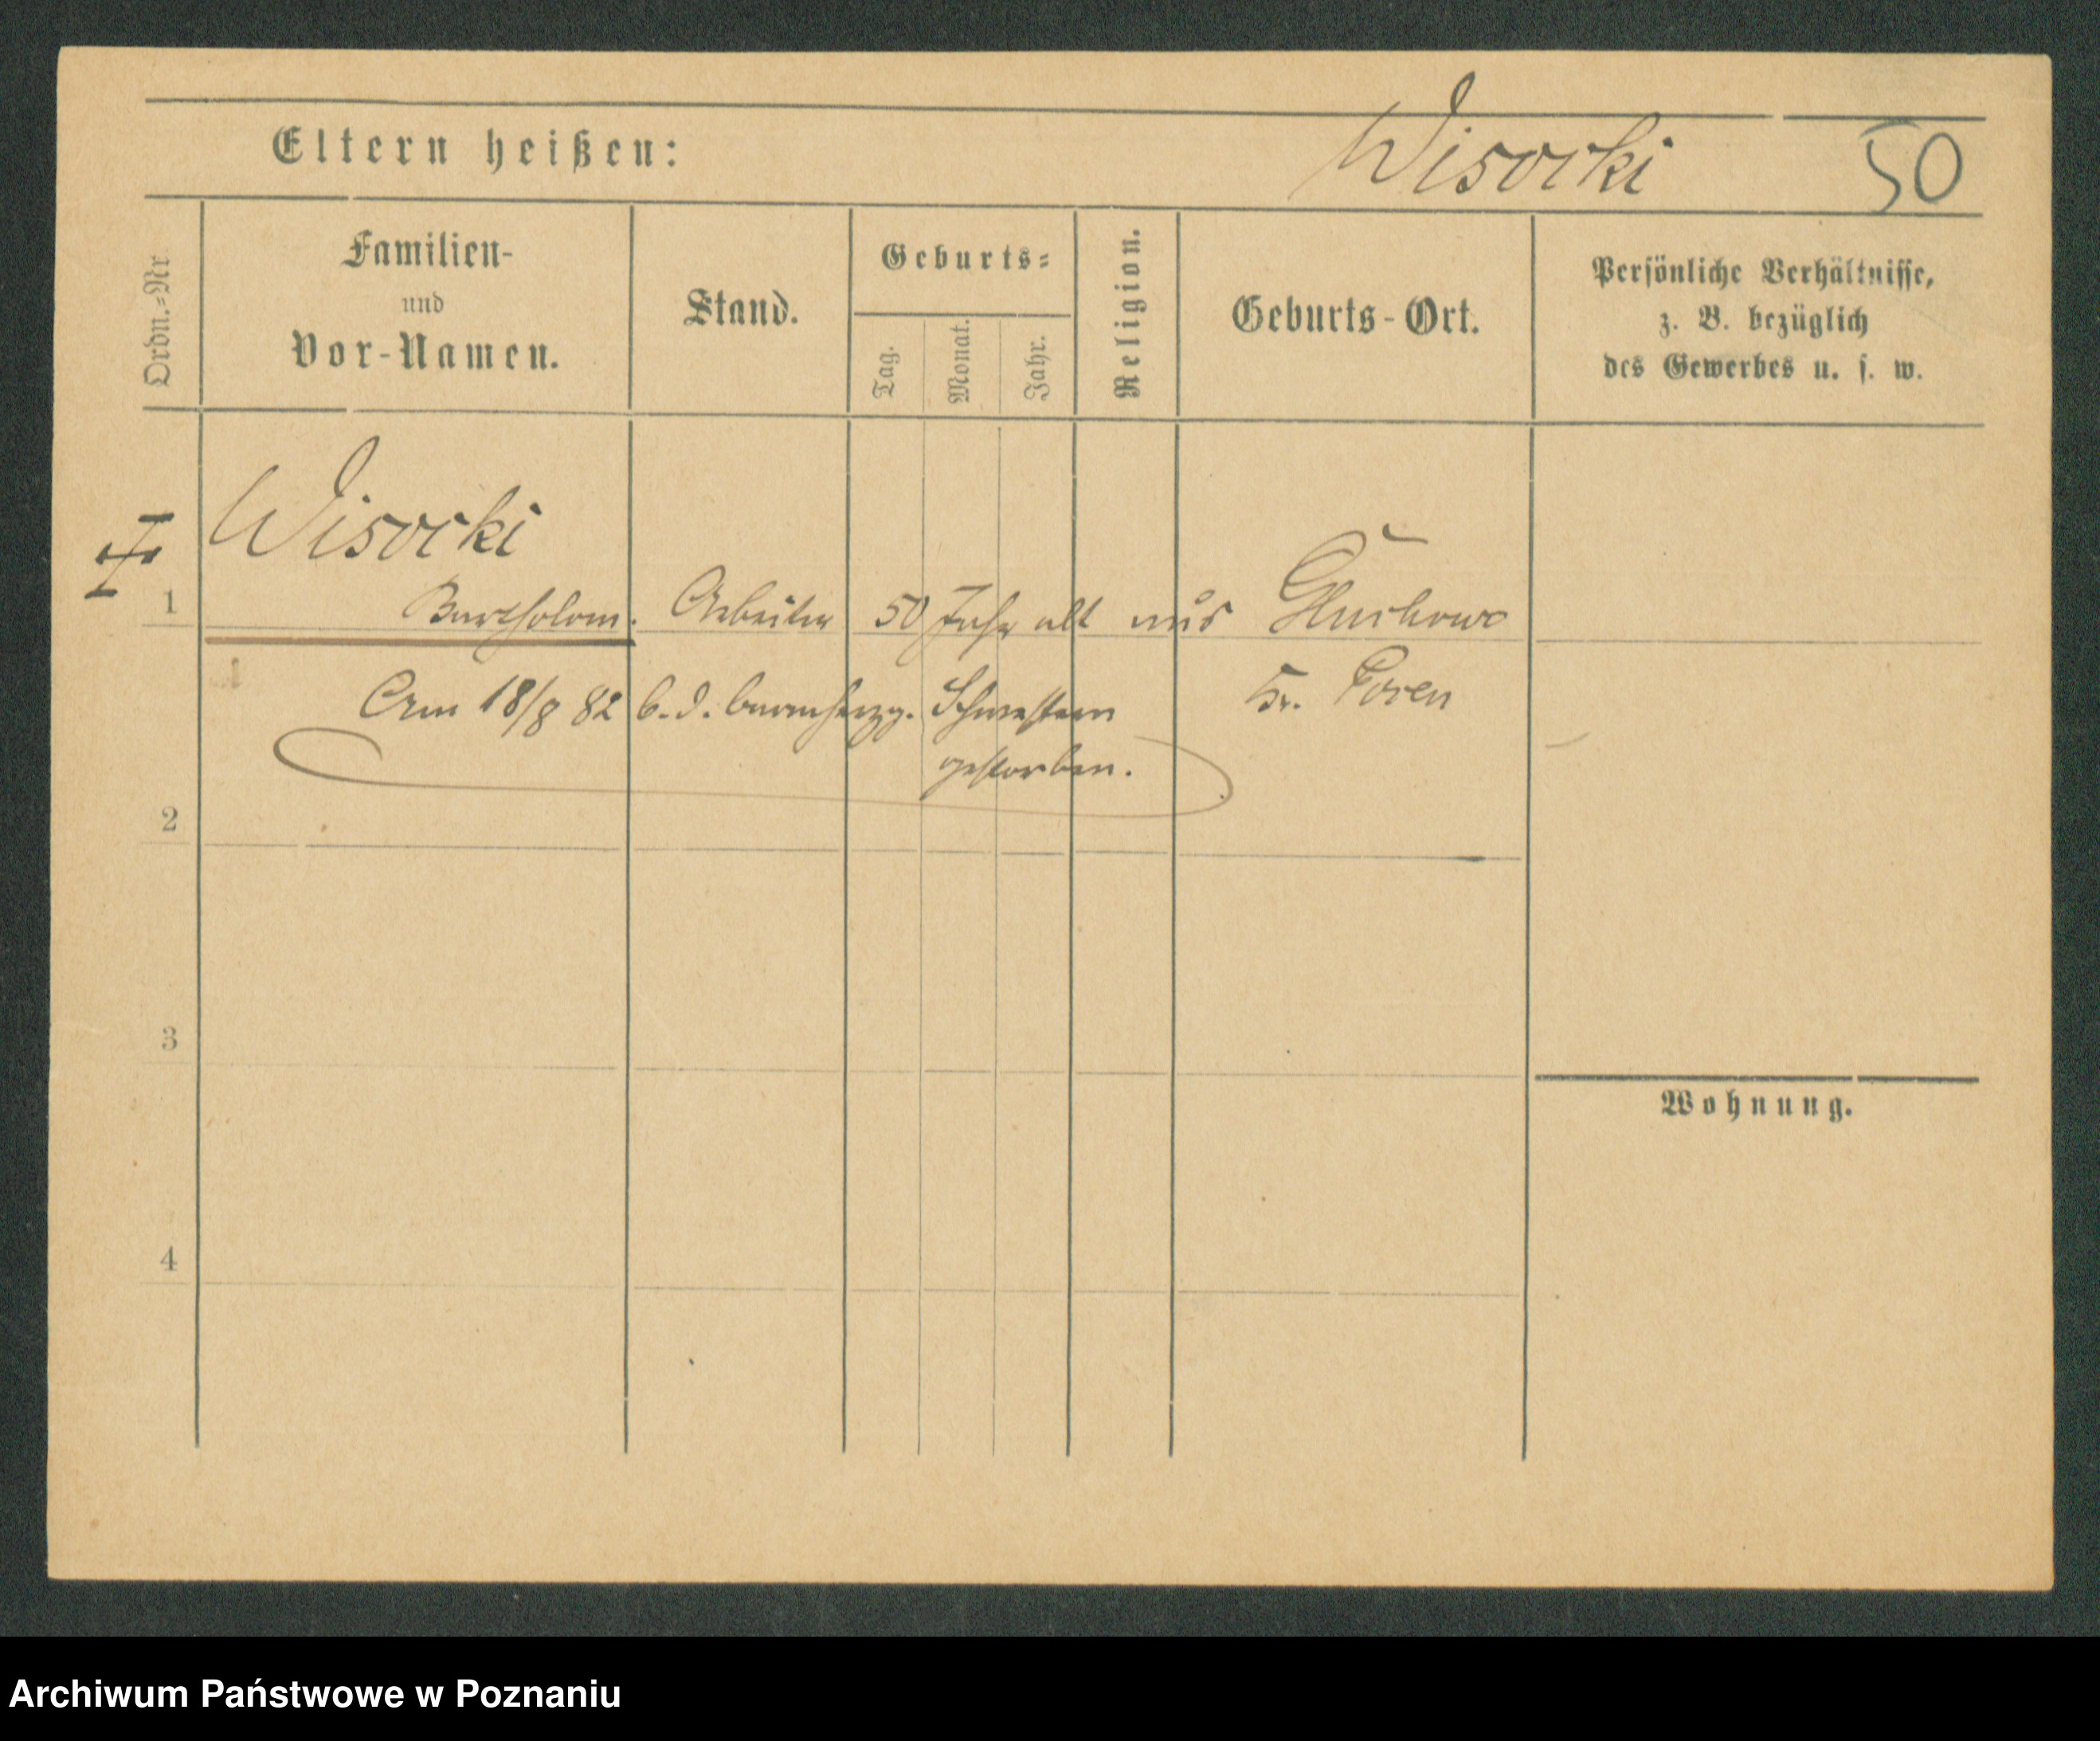 Eltern heißen:
Wisocki 50
Ordn.=Nr.
Familien-
und
Vor-Namen.
Stand.
Geburts=
Tag.
Monat.
Jahr.
Religion.
Geburts-Ort.
Persönliche Verhältnisse,
z. B. bezüglich
des Gewerbes u. s. w.
Wisocki
1 Bartholom. Arbeiter 50 Jahr alt aus Gluchowo
Am 18/8 82 b. d. barmherzg. Schwestern Kr. Posen
gestorben.
2
3
Wohnung.
4
Archiwum Państwowe w Poznaniu